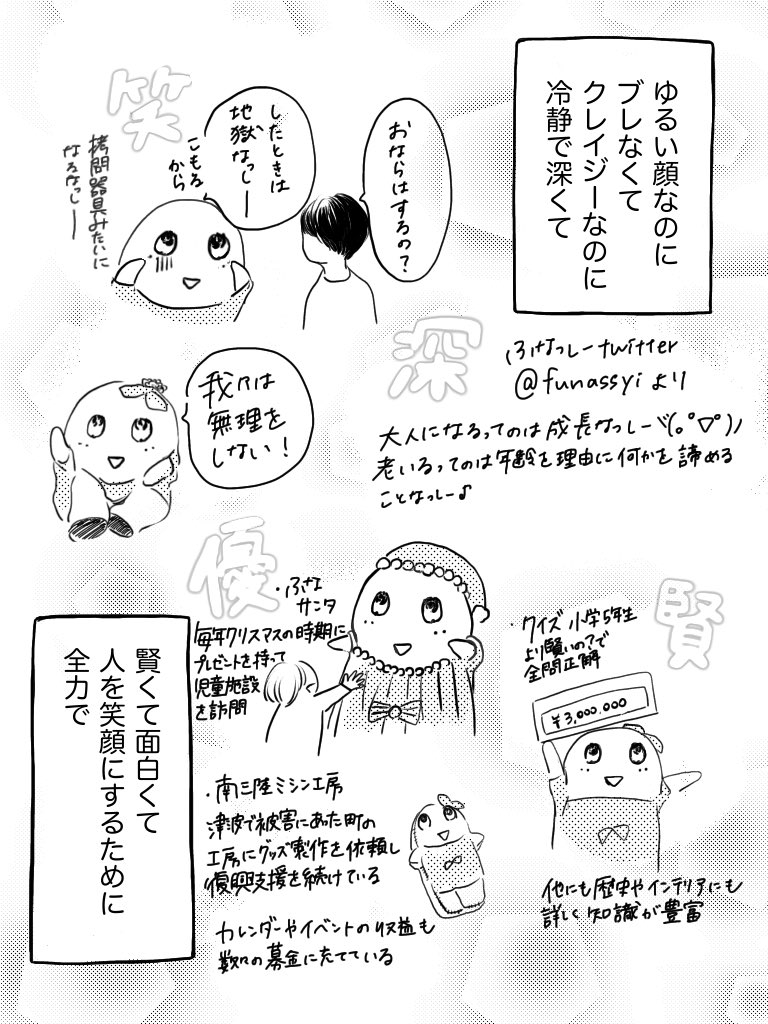 ゆるい顔なのに
ブレなくて
クレイジーなのに
冷静で深くて
おならはするの?
したときは
地獄なっしー
こもる
から
拷問器具みたいに
なるなっしー
笑
深
ふなっしーtwitter
@funassyiより
大人になるってのは成長なっしーヾ(。°▽°)ノ
老いるってのは年齢を理由に何かを諦める
ことなっしー♪
我々は
無理を
しない!
優
・ふな
サンタ
毎年クリスマスの時期に
プレゼントを持って
児童施設
を訪問
賢
・クイズ小学5年生
より賢いの?で
全問正解
¥3,000,000
他にも歴史やインテリアにも
詳しく知識が豊富
・南三陸ミシン工房
津波で被害にあった町の
工房にグッズ製作を依頼し
復興支援を続けている
カレンダーやイベントの収益も
数々の募金に充てている
賢くて面白くて
人を笑顔にするために
全力で